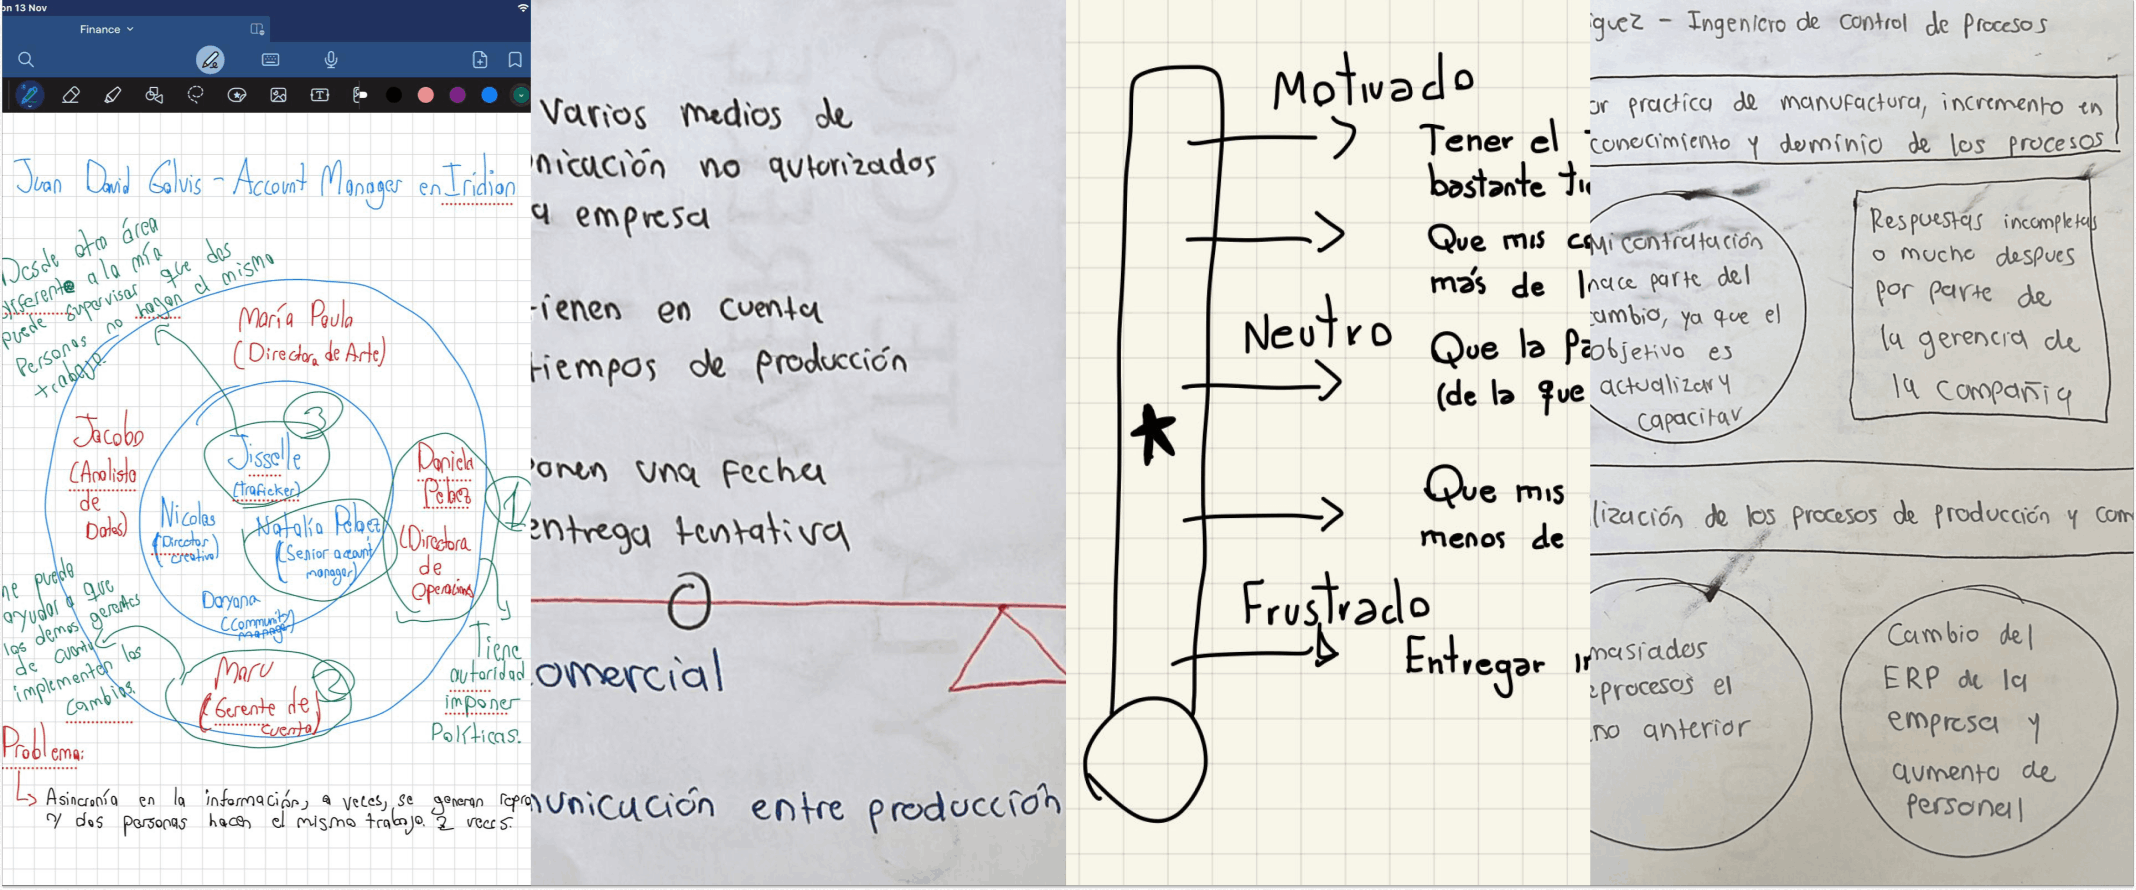 on 13 Nov
Finance
Juan David Galvis - Account Manager en Iridian
Desde otra área
diferente a la mía
puede supervisar que dos
Personas no hagan el mismo
trabajo.
María Paula
(Directora de Arte)
Jacobo
(Analista
de
Datos)
3
Jisselle
(Traficker)
Nicolas
(Director
creativo)
Natalia Pelaez
(Senior account
manager)
Dayana
(Community
manager)
Daniela
Pelaez
(Directora
de
Operacions)
1
Tiene
autoridad
imponer
Políticas.
me puede
ayudar a que
los demas gerentes
de cuenta
implementen los
cambios.
Maru
(Gerente de
cuenta)
2
Problema:
Asincronía en la información, a veces, se generan repro
y dos personas hacen el mismo trabajo 2 veces.
Varios medios de
nicación no autorizados
a empresa
tienen en cuenta
tiempos de producción
ponen una fecha
entrega tentativa
comercial
municación entre producción
Motivado
Tener el T
bastante tie
Que mis co
más de l
Neutro
Que la Pa
(de la que
Que mis
menos de
Frustrado
Entregar in
guez - Ingeniero de control de procesos
or practica de manufactura, incremento en
conocimiento y dominio de los procesos
Mi contratación
hace parte del
cambio, ya que el
objetivo es
actualizar y
capacitar
Respuestas incompletas
o mucho despues
por parte de
la gerencia de
la compañia
lización de los procesos de producción y com
masiados
eprocesos el
no anterior
Cambio del
ERP de la
empresa y
aumento de
personal